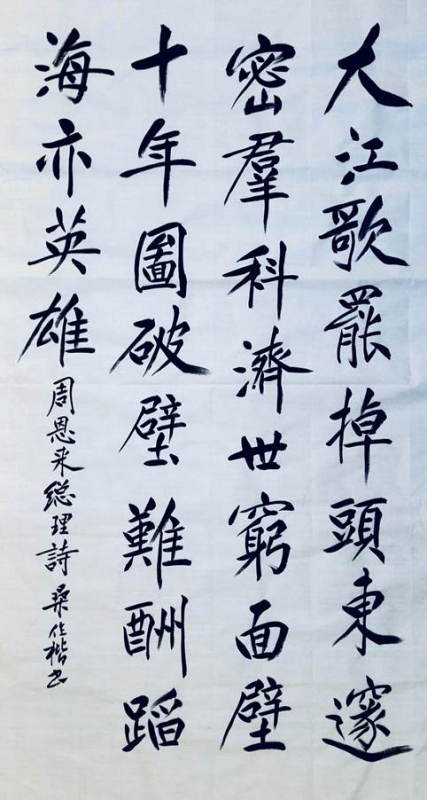 大江歌罷掉頭東邃
密羣科濟世窮面壁
十年圖破壁難酬蹈
海亦英雄
周恩来総理詩 桑作楷书